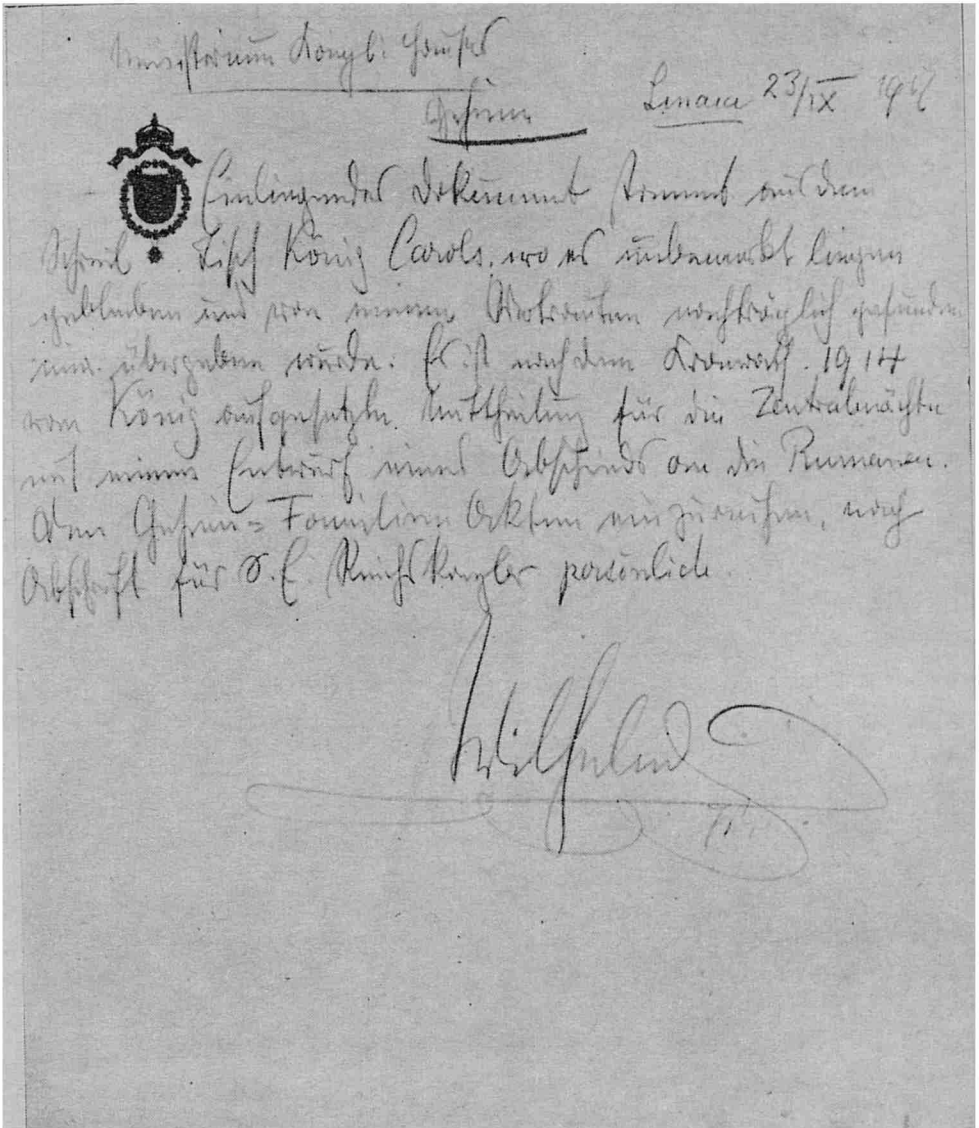 Ministerium Königl: Hauses
Geheim
Sinaia 23/IX 1917
Einliegendes Dokument stammt aus dem
Schreib Tisch König Carols, wo es unbemerkt liegen
geblieben und von meinen nachträglich gefunden
mir übergeben wurde. Es ist nach dem Kronrath. 1914
vom König aufgesetzte Mittheilung für die Zentralmächte
mit einem Entwurf eines Abschieds an die Rumänen.
Den Geheim= Familien Akten einzureihen, nach
Abschrift für S. E. Reichskanzler persönlich.
Wilhelm